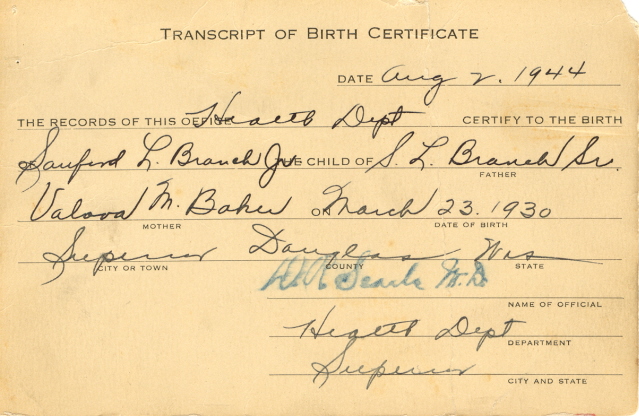 TRANSCRIPT OF BIRTH CERTIFICATE
DATE Aug 2. 1944
THE RECORDS OF THIS OFFICE Health Dept CERTIFY TO THE BIRTH
Sanford L. Branch Jr. THE CHILD OF S. L. Branch Sr.
FATHER
M. Baker ON March 23. 1930
MOTHER DATE OF BIRTH
Superior Douglas Wis
CITY OR TOWN COUNTY STATE
Searle M.D.
NAME OF OFFICIAL
Health Dept
DEPARTMENT
Superior
CITY AND STATE